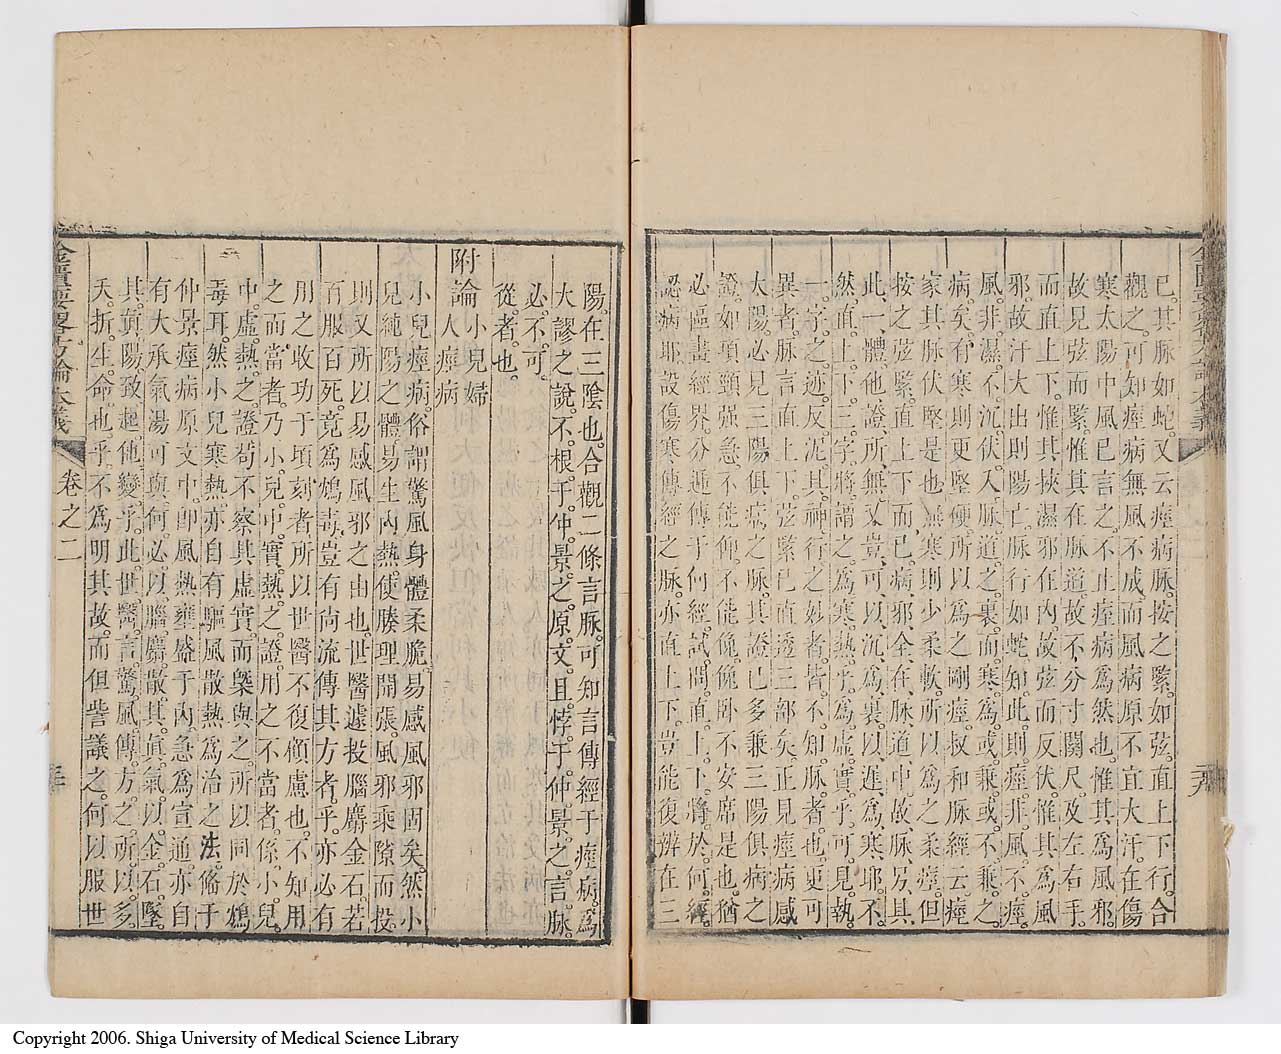 已其脉如蛇又云痙病脉按之緊如弦直上下行合
觀之可知痙病無風不成而風病原不宜大汗在傷
寒太陽中風已言之不止痙病爲然也惟其爲風邪
故見弦而緊惟其在脉道故不分寸關尺及左右手
而直上下惟其挾濕邪在内故弦而反伏惟其爲風
邪故汗大出則陽亡脉行如蛇知此則痙非風不痙
風非濕不沉伏入脉道之裏而寒爲或兼或不兼之
病矣有寒則更堅硬所以爲之剛痙叔和脉經云痙
家其脉伏堅是也無寒則少柔軟所以爲之柔痙但
按之弦緊直上下而已病邪全在脉道中故脉另具
此一體他證所無又豈可以沉爲裏以遲爲寒耶不
然直上下三字將謂之爲寒熱乎爲虛實乎可見執
一字之迹反泥其神行之妙者皆不知脉者也更可
異者脉言直上下弦緊已直透三部矣正見痙病感
太陽必見三陽俱病之脉其證已多兼三陽俱病之
證如項頸强急不能仰不能俛俛卧不安席是也猶
必區畫經界分遞傳于何經試問直上下將於何經
認病耶設傷寒傳經之脉亦直上下豈能復辨在三
陽在三陰也合觀二條言脉可知言傳經于痙病爲
大謬之說不根于仲景之原文且悖于仲景之言脉
必不可
從者也
附論小兒婦
人痙病
小兒痙病俗謂驚風身體柔脆易感風邪固矣然小
兒純陽之體易生内熱使腠理開張風邪乘隙而投
則又所以易感風邪之由也世醫遽投腦麝金石若
百服百死竟爲鴆毒豈有尚流傳其方者乎亦必有
用之收功于頃刻者所以世醫不復傾慮也不知用
之而當者乃小兒中實熱之證用之不當者係小兒
中虛熱之證苟不察其虛實而槩與之所以同於鴆
毒耳然小兒寒熱亦自有驅風散熱爲治之法偹于
仲景痙病原文中卽風熱壅盛于内急爲言通亦自
有大承氣湯可與何必以腦麝散其眞氣以金石墜
其頂陽致起他變乎此世醫言驚風傳方之所以多
夭折生命也乎不爲明其故而但訾議之何以服世
金匱要畧方論本義
卷之二